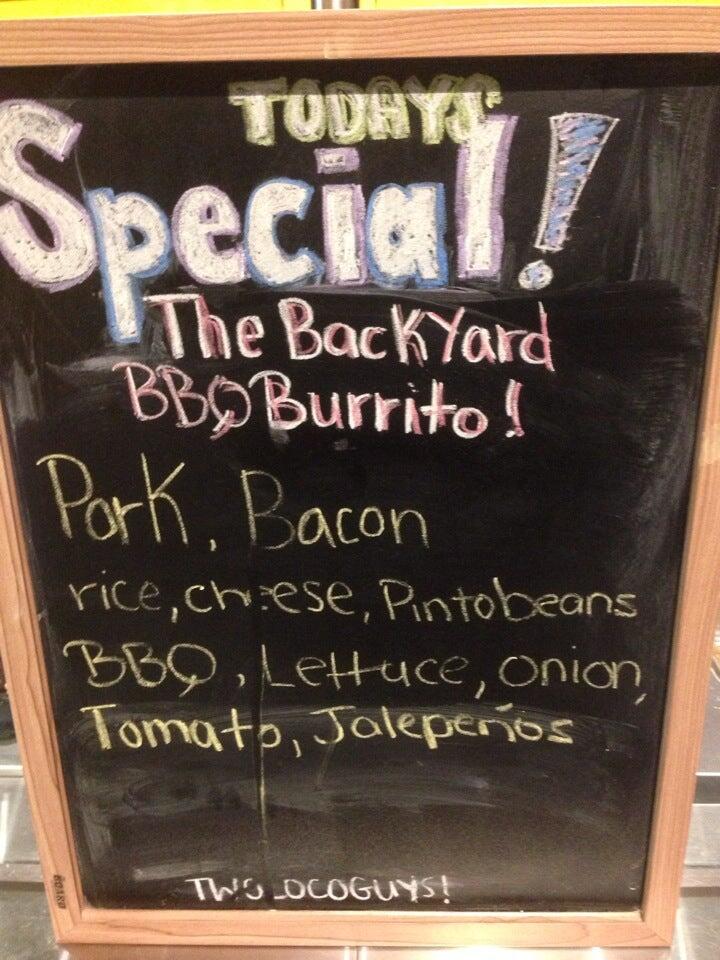 TODAYS
Special!
The BackYard
BBQ Burrito!
Pork, Bacon
rice, cheese, Pinto beans
BBQ, Lettuce, onion,
Tomato, Jalepeños
TWO LOCO GUYS!
BOARD